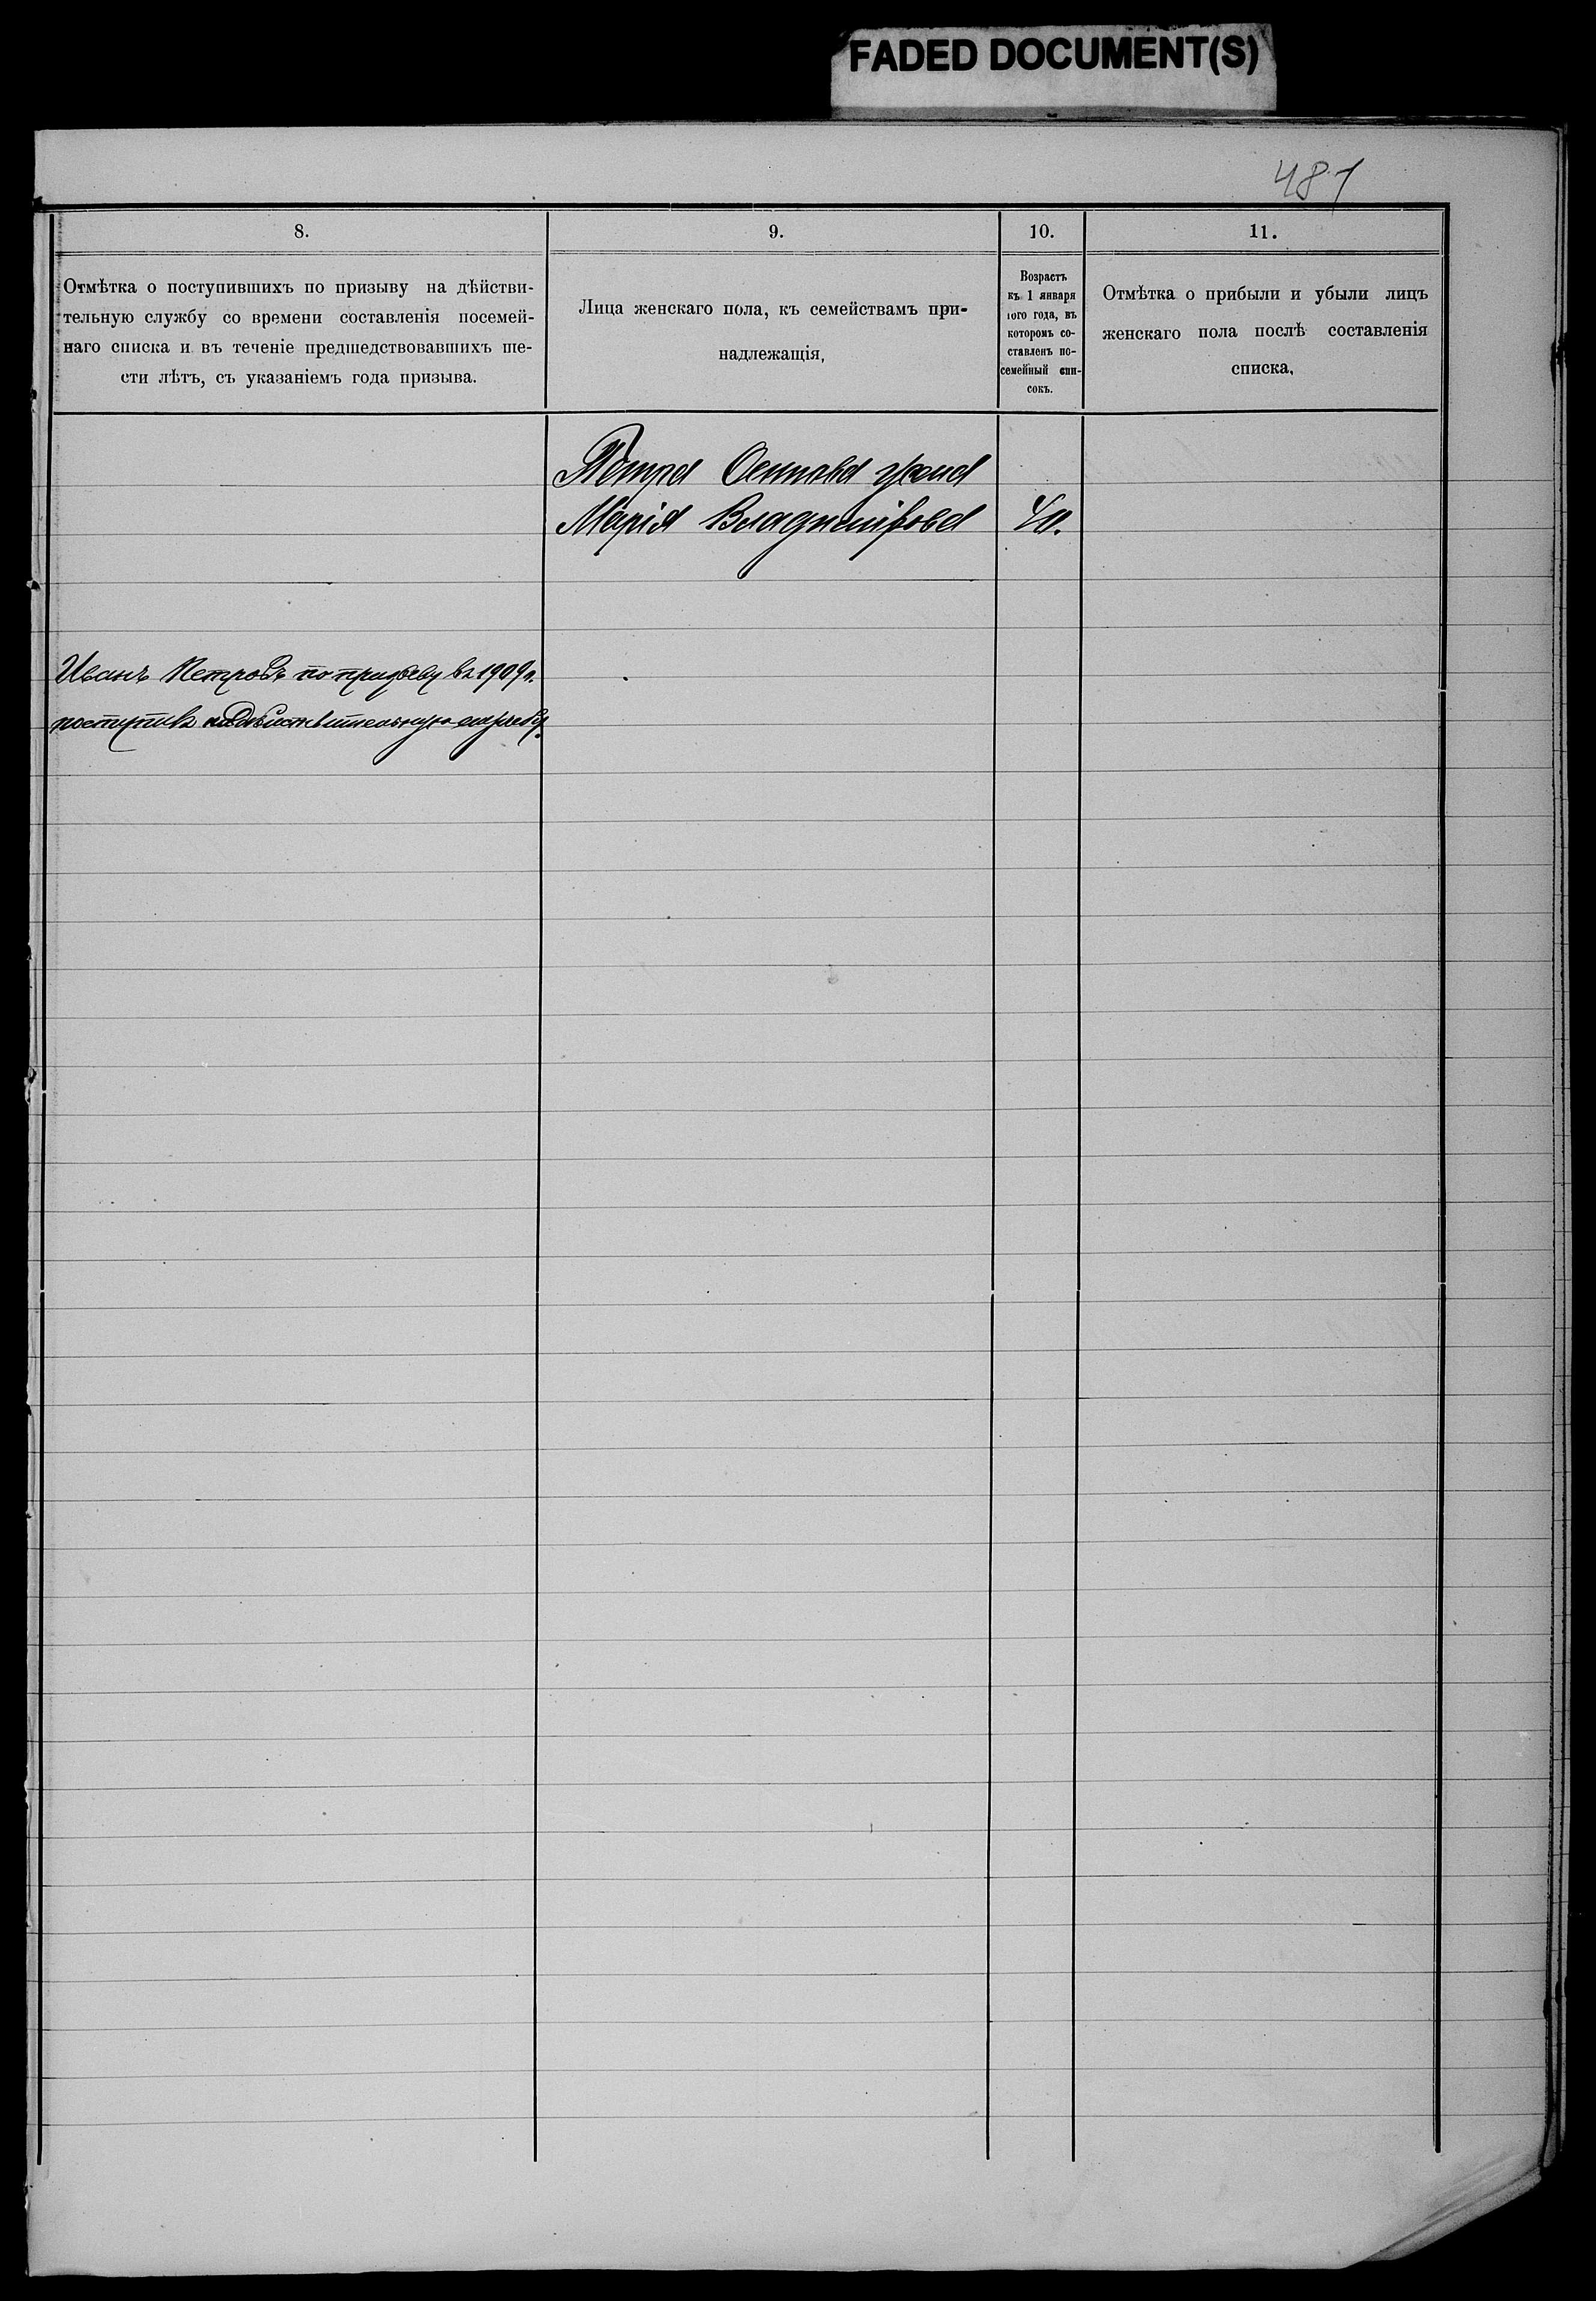 FADED DOCUMENT(S)
481
8.
9.
10.
11.
Отмѣтка о поступившихъ по призыву на дѣйстви-
тельную службу со времени составленія посемей-
наго списка и въ теченіе предшедствовавшихъ ше-
сти лѣтъ, съ указаніемъ года призыва.
Лица женскаго пола, къ семействамъ при-
надлежащія,
Возрастъ
къ 1 января
того года, въ
которомъ со-
ставленъ по-
семейный спи-
сокъ.
Отмѣтка о прибыли и убыли лицъ
женскаго пола послѣ составленія
списка.
Петра Осипова жена
Марія Владимірова 40.
Иванъ Петровъ по призыву въ 1909 г.
поступилъ на дѣйствительную службу.